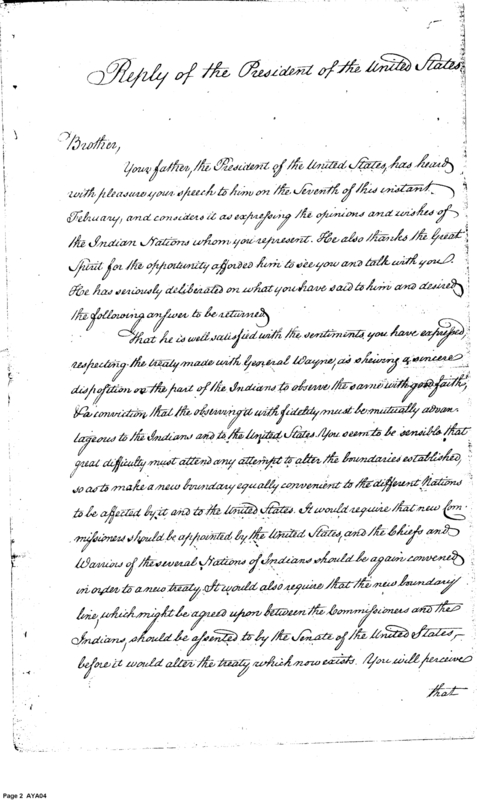 5
Reply of the President of the United States
Brother,
Your father, the President of the United States, has heard
with pleasure your speech to him on the Seventh of this instant,
February, and considers it as expressing the opinions and wishes of
the Indian Nations whom you represent. He also thanks the Great
Spirit for the opportunity afforded him to see you and talk with you.
He has seriously deliberated on what you have said to him and desired
the following answer to be returned
That he is well satisfied with the sentiments you have expressed,
respecting the treaty made with General Wayne, as shewing a sincere
disposition on the part of the Indians to observe the same with good faith,
& a conviction that the observing it with fidelity must be mutually advan-
tageous to the Indians and to the United States. You seem to be sensible that
great difficulty must attend any attempt to alter the boundaries established,
so as to make a new boundary equally convenient to the different Nations
to be affected by it and to the United States. It would require that new Com-
missioners should be appointed by the United States, and the Chiefs and
Warriors of the several Nations of Indians should be again convened
in order to a new treaty. It would also require that the new boundary
line, which might be agreed upon between the Commissioners and the
Indians, should be assented to by the Senate of the United States,
before it would alter the treaty which now exists. You will perceive
that
Page 2 AYA04